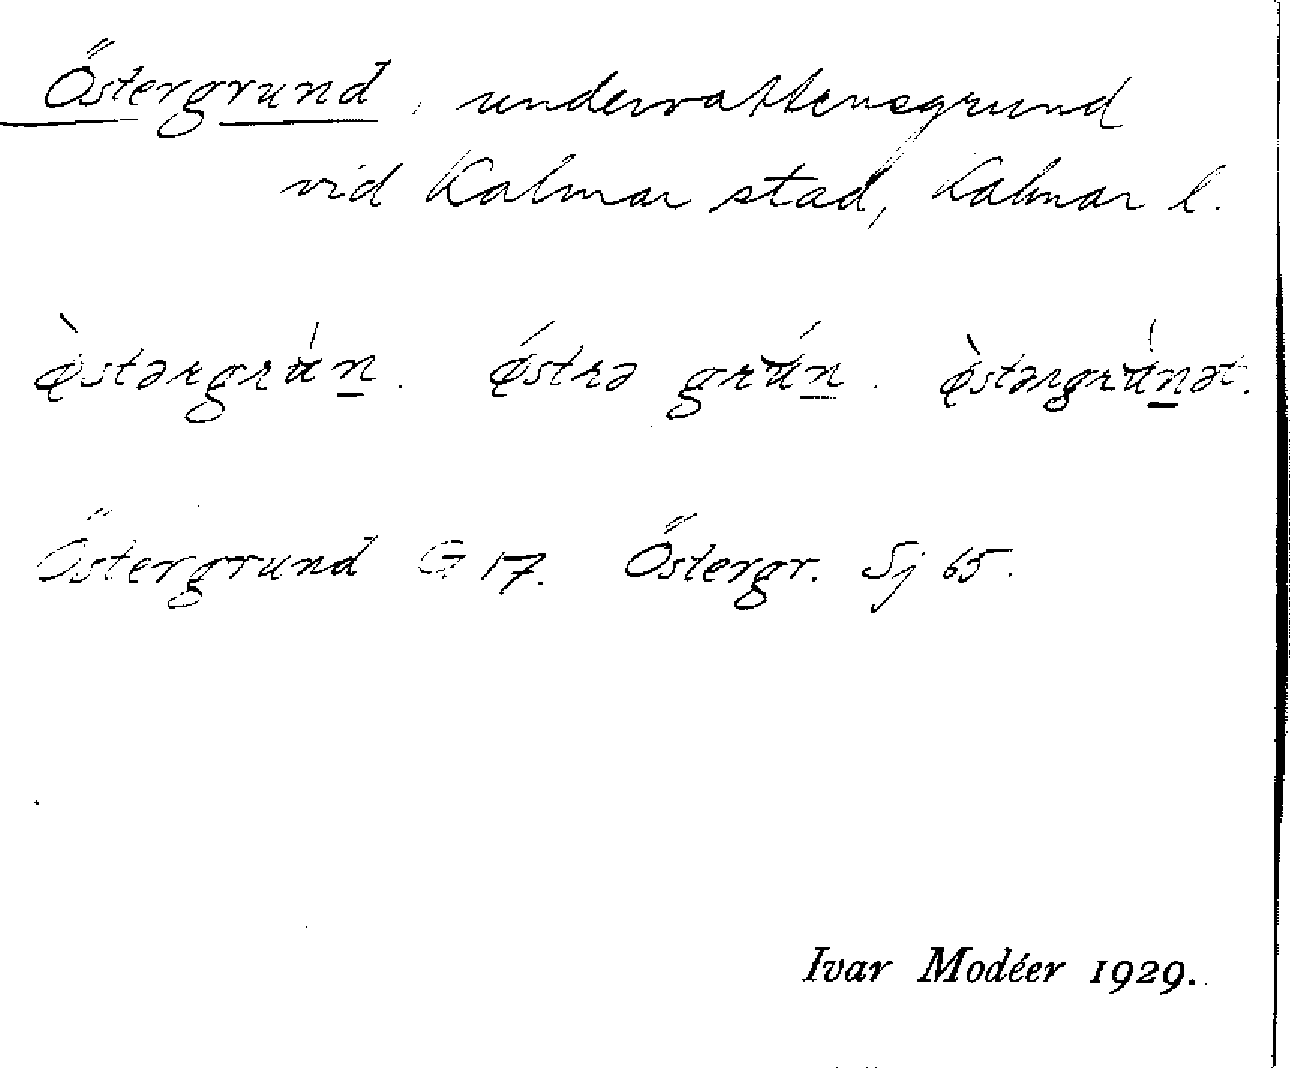 Östergrund, undervattensgrund
vid Kalmar stad, Kalmar l.
ø̀stərgrún. østrə grún. ø̀stərgrúnət.
Östergrund G 17. Östergr. Sj 65.
Ivar Modéer 1929.